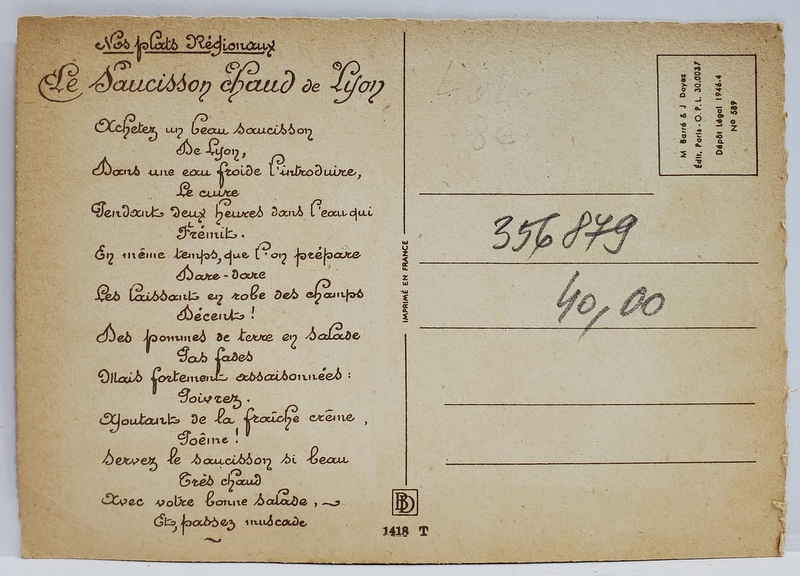 Nos plats Régionaux
Le Saucisson chaud de Lyon
Achetez un beau saucisson
De Lyon,
Dans une eau froide l'introduire,
Le cuire
Pendant deux heures dans l'eau qui
Frémit.
En même temps, que l'on prépare
Dare-dare
Les laissant en robe des champs
Décent !
Des pommes de terre en salade
Pas fades
Mais fortement assaisonnées :
Poivrez.
Ajoutant de la fraîche crême ,
Poême !
Servez le saucisson si beau
Très chaud
Avec votre bonne salade ,
Et, passez muscade
IMPRIMÉ EN FRANCE
BD
1418 T
M Barré & J Dayez
Édit, Paris - O. P. L. 30.0037
Dépôt Légal 1946-4
N° 589
356879
40,00